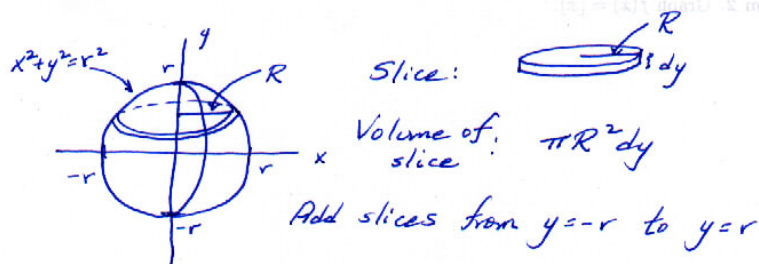 m 2. Graph f(x) = |x|.
x²+y²=r²
y
r
R
-r
r
x
-r
Slice:
R
dy
Volume of slice: πR²dy
Add slices from y=-r to y=r